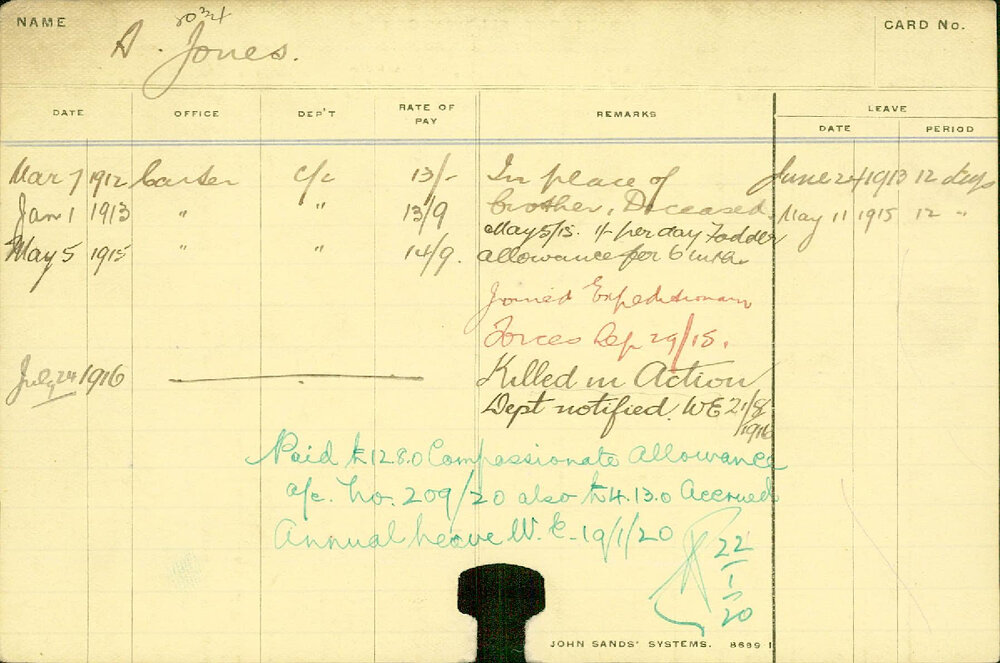 NAME
CARD No.
A. Jones.
DATE OFFICE DEP'T RATE OF PAY REMARKS LEAVE
DATE PERIOD
Mar 7 1912 Carter c/c 13/- In place of June 24 1913 12 days
Jan 1 1913 " " 13/9 brother, Deceased. May 11 1915 12 "
May 5/15. 1/- per day Fodder
May 5 1915 " " 14/9. allowance for 6 mths.
Joined Expeditionary
Forces Sep 29/15.
July 24 1916 Killed in Action
Dept notified. WE 21/8/1916
Paid £128.0 Compassionate Allowance
a/c. No. 209/20 also £4.13.0 Accrued
Annual Leave W.E. 19/1/20
22/1/20
JOHN SANDS' SYSTEMS. 8699 1